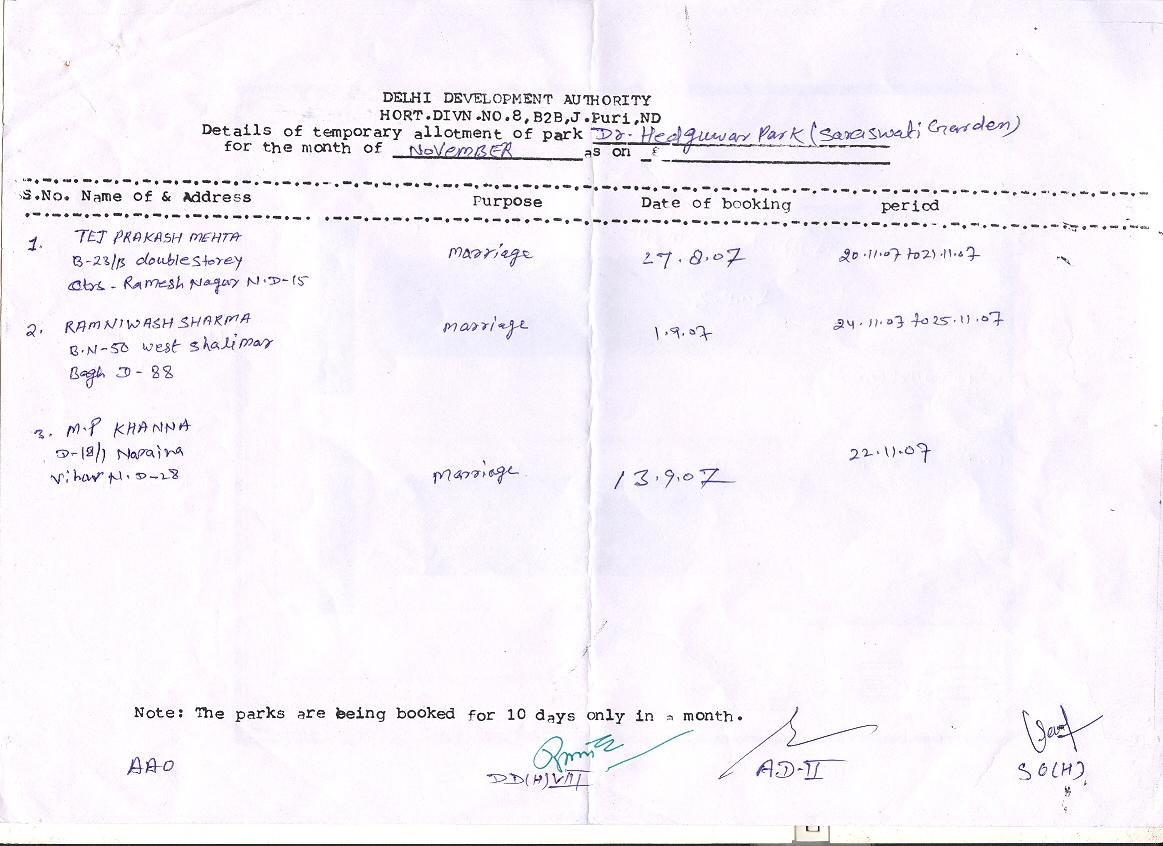 DELHI DEVELOPMENT AUTHORITY
HORT.DIVN.NO.8,B2B,J.Puri,ND
Details of temporary allotment of park Dr. Hedguwar Park (Saraswati Garden)
for the month of NOVEMBER as on
S.No. Name of & Address Purpose Date of booking period
1. TEJ PRAKASH MEHTA marriage 27.8.07 20.11.07 to 21.11.07
B-23/B double storey
Ramesh Nagar N.D-15
2. RAMNIWASH SHARMA marriage 1.9.07 24.11.07 to 25.11.07
B.N-50 west Shalimar
Bagh D-88
3. M.P KHANNA
D-18/1 Naraina 22.11.07
Vihar N.D-28 marriage 13.9.07
Note: The parks are being booked for 10 days only in a month.
AAO DD(H)VIII AD-II SO(H)